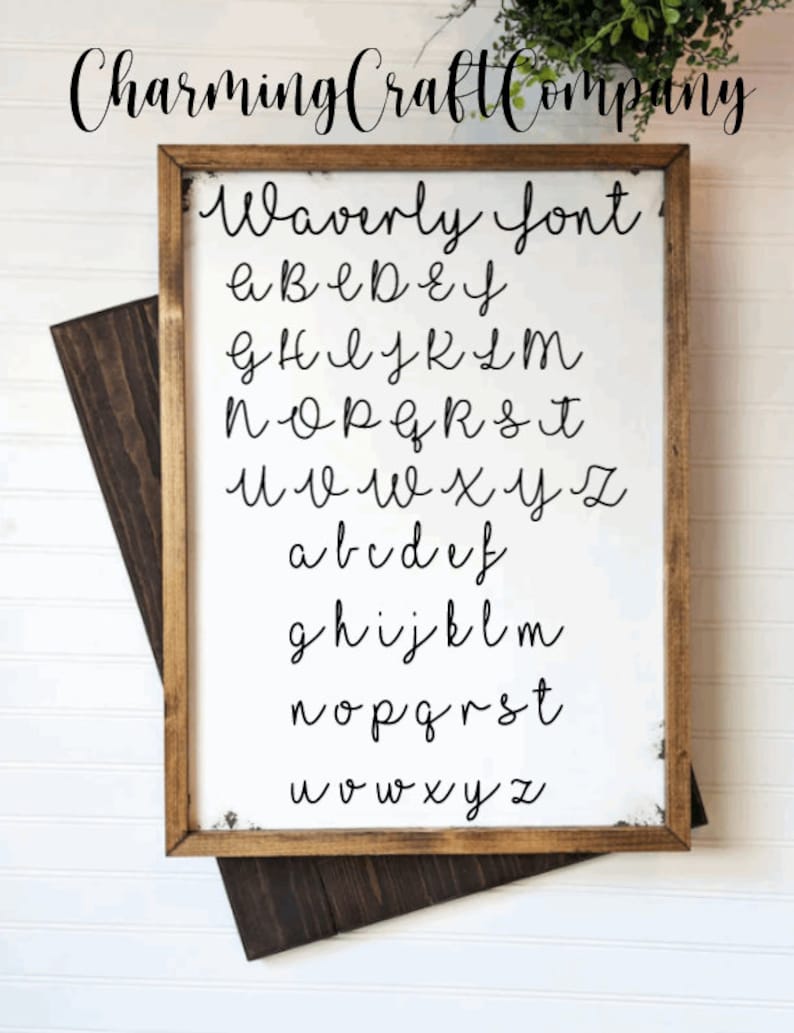 CharmingCraftCompany
Waverly font
A B C D E F
G H I J K L M
N O P Q R S T
U V W X Y Z
a b c d e f
g h i j k l m
n o p q r s t
u v w x y z